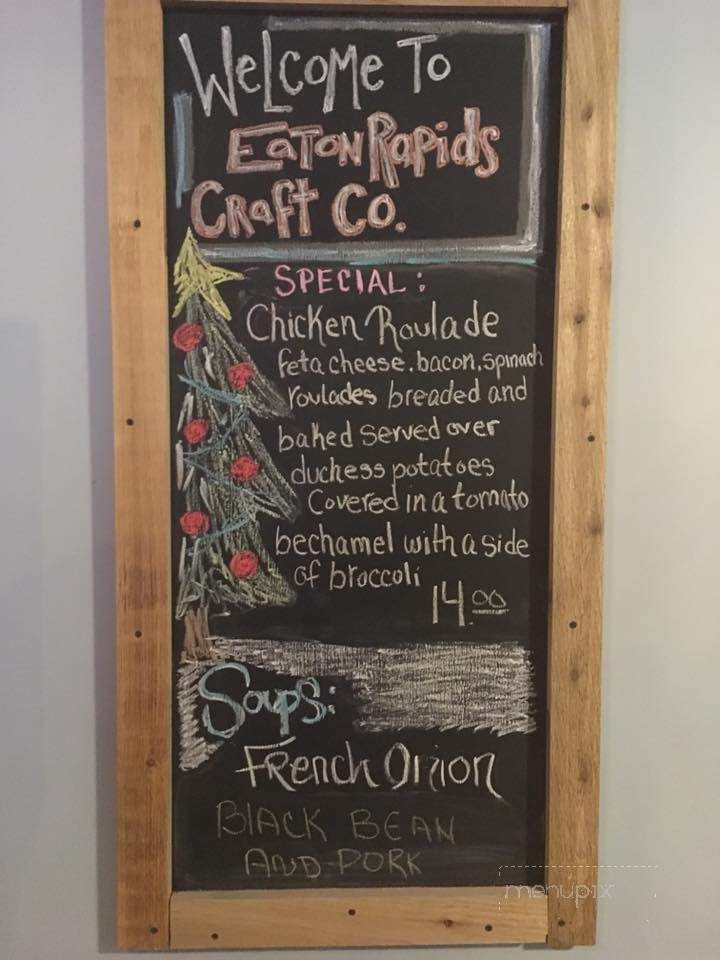 Welcome To
Eaton Rapids
Craft Co.
SPECIAL:
Chicken Roulade
feta cheese, bacon, spinach
roulades breaded and
baked served over
duchess potatoes
Covered in a tomato
bechamel with a side
of broccoli
14.00
Soups:
French Onion
BLACK BEAN
AND PORK
menupix